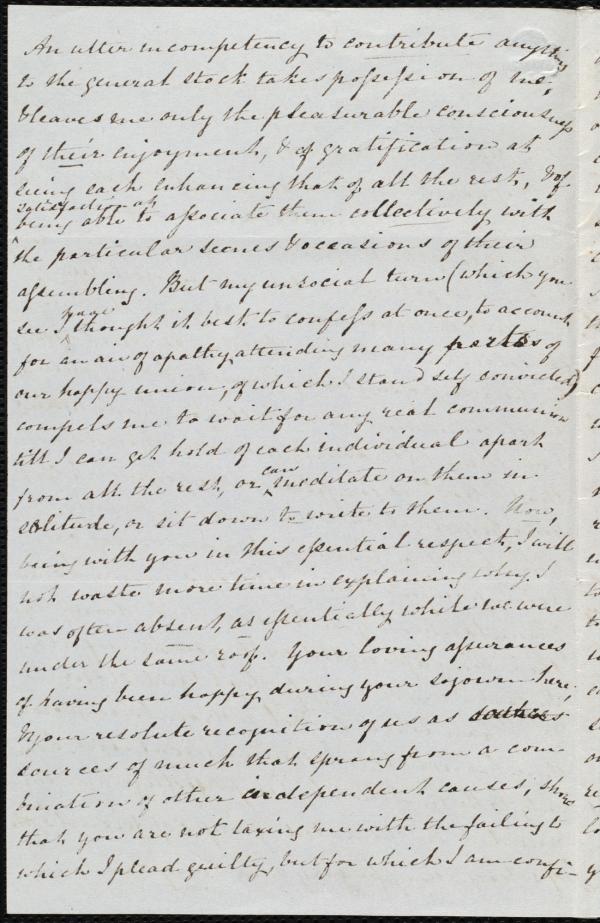 An utter incompetency to contribute anything
to the general stock takes possession of me,
& leaves me only the pleasurable consciousness
of their enjoyment, & of gratification at
seeing each enhancing that of all the rest, & of
satisfaction at
being able to associate them collectively with
the particular scenes & occasions of their
assembling. But my unsocial turn (which you
see I have thought it best to confess at once, to account
for an air of apathy, attending many parts of
our happy union, of which I stand self convicted)
compels me to wait for any real communion
till I can get hold of each individual apart
from all the rest, or can meditate on them in
solitude, or sit down to write to them. Now,
being with you in this essential respect, I will
not waste more time in explaining why I
was often absent, as essentially while we were
under the same roof. Your loving assurances
of having been happy during your sojourn here,
& your resolute recognition of us as
sources of much that sprang from a com-
bination of other independent causes, show
that you are not taxing me with the failing to
which I plead guilty, but for which I am confi-